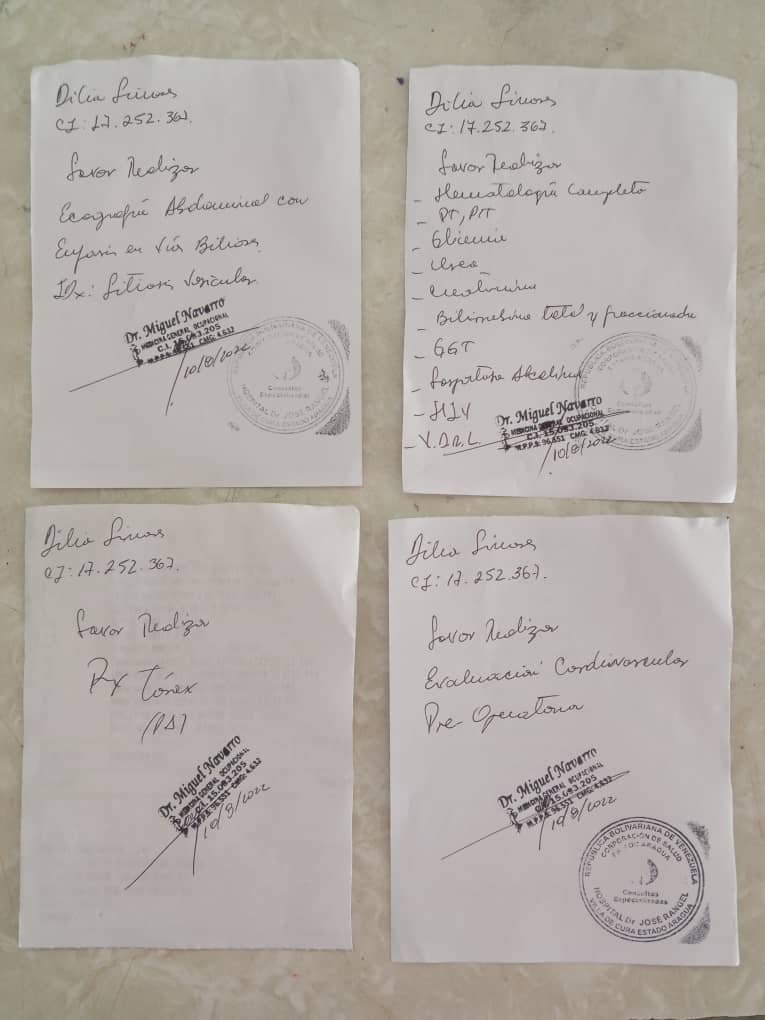 Dilia Linares
CI: 17.252.367.
Favor Realizar
Ecografía Abdominal con
Enfasis en Vías Biliares.
IDx: Litiasis Vesicular.
Dr. Miguel Navarro
MEDICINA GENERAL OCUPACIONAL
C.I. 15.093.205
M.P.P.S. 96.551 CMG: 4.632
10/8/2022
REPÚBLICA BOLIVARIANA DE VENEZUELA
Consultas
Especializadas
HOSPITAL Dr. JOSÉ RANGEL
VILLA DE CURA ESTADO ARAGUA
Dilia Linares
CI: 17.252.367.
Favor Realizar
- Hematología Completa
- PT, PTT
- Glicemia
- Urea
- Creatinina
- Bilirrubina total y fraccionada
- GGT
- Fosfatasa Alcalina
- HIV
- V.D.R.L
Dr. Miguel Navarro
MEDICINA GENERAL OCUPACIONAL
C.I. 15.093.205
M.P.P.S. 96.551 CMG: 4.632
10/8/2022
REPÚBLICA BOLIVARIANA DE
CORPORACIÓN
Consultas
Dr. JOSÉ RANGEL
CURA ESTADO ARAGUA
Dilia Linares
CI: 17.252.367.
Favor Realizar
Rx Tórax
(PA)
Dr. Miguel Navarro
MEDICINA GENERAL OCUPACIONAL
C.I. 15.093.205
M.P.P.S. 96.551 CMG: 4.632
10/8/2022
Dilia Linares
CI: 17.252.367.
Favor Realizar
Evaluación Cardiovascular
Pre-Operatoria
Dr. Miguel Navarro
MEDICINA GENERAL OCUPACIONAL
C.I. 15.093.205
M.P.P.S. 96.551 CMG: 4.632
10/8/2022
REPÚBLICA BOLIVARIANA DE VENEZUELA
CORPORACIÓN DE SALUD
ARAGUA
Consultas
Especializadas
HOSPITAL Dr. JOSÉ RANGEL
VILLA DE CURA ESTADO ARAGUA